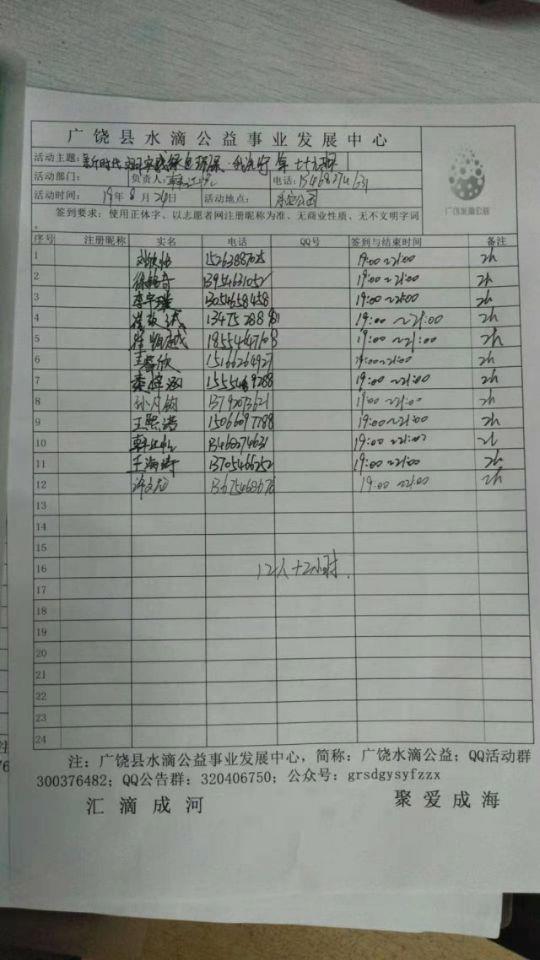 广饶县水滴公益事业发展中心
活动主题: 新时代 绿色环保
活动部门: 负责人: 电话:
活动时间: 19年8月24日 活动地点: 公园
签到要求: 使用正体字、以志愿者网注册昵称为准、无商业性质、无不文明字词。
广饶水滴公益
序号 注册昵称 实名 电话 QQ号 签到与结束时间 备注
1 15263887025 19:00~21:00 2h
2 徐铭奇 13954631052 19:00~21:00 2h
3 李宇璇 13054658458 19:00~21:00 2h
4 19:00~21:00 2h
5 19:00~21:00 2h
6 王馨欣 15166264927 19:00~21:00 2h
7 19:00~21:00 2h
8 13792073621 19:00~21:00 2h
9 王熙涛 15066097788 19:00~21:00 2h
10 19:00~21:00 2h
11 王海涛 13705466252 19:00~21:00 2h
12 13675468676 19:00~21:00 2h
13
14
15
16 12人+2小时.
17
18
19
20
21
22
23
24
注: 广饶县水滴公益事业发展中心, 简称: 广饶水滴公益; QQ活动群
300376482; QQ公告群: 320406750; 公众号: grsdgysyfzzx
汇滴成河 聚爱成海